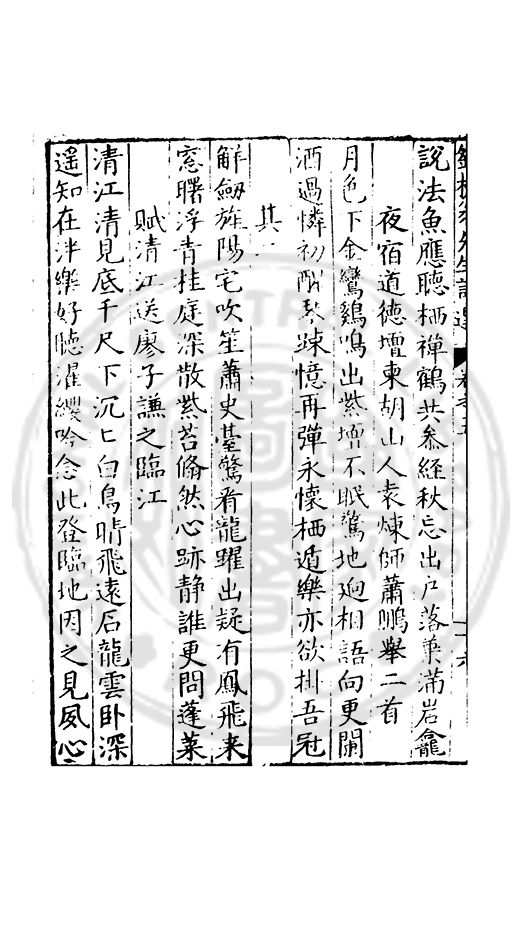 說法魚應聽栖禪鶴共參經秋忘出户落葉滿岩龕
夜宿道德壇柬胡山人袁煉師蕭鵬舉二首
月色下金鸞鷄鳴出紫壇不眠驚地迥相語向更闌
酒過憐初醒琴踈憶再彈永懷栖遁樂亦欲掛吾冠
其二
解劔旌陽宅吹笙蕭史臺驚看龍躍出疑有鳳飛来
窓曙浮青桂庭深散紫苔翛然心跡静誰更問蓬萊
賦清江送廖子謙之臨江
清江清見底千尺下沉匕白鳥晴飛遠石龍雲卧深
遥知在泮樂好聴濯纓吟念此登臨地因之見夙心